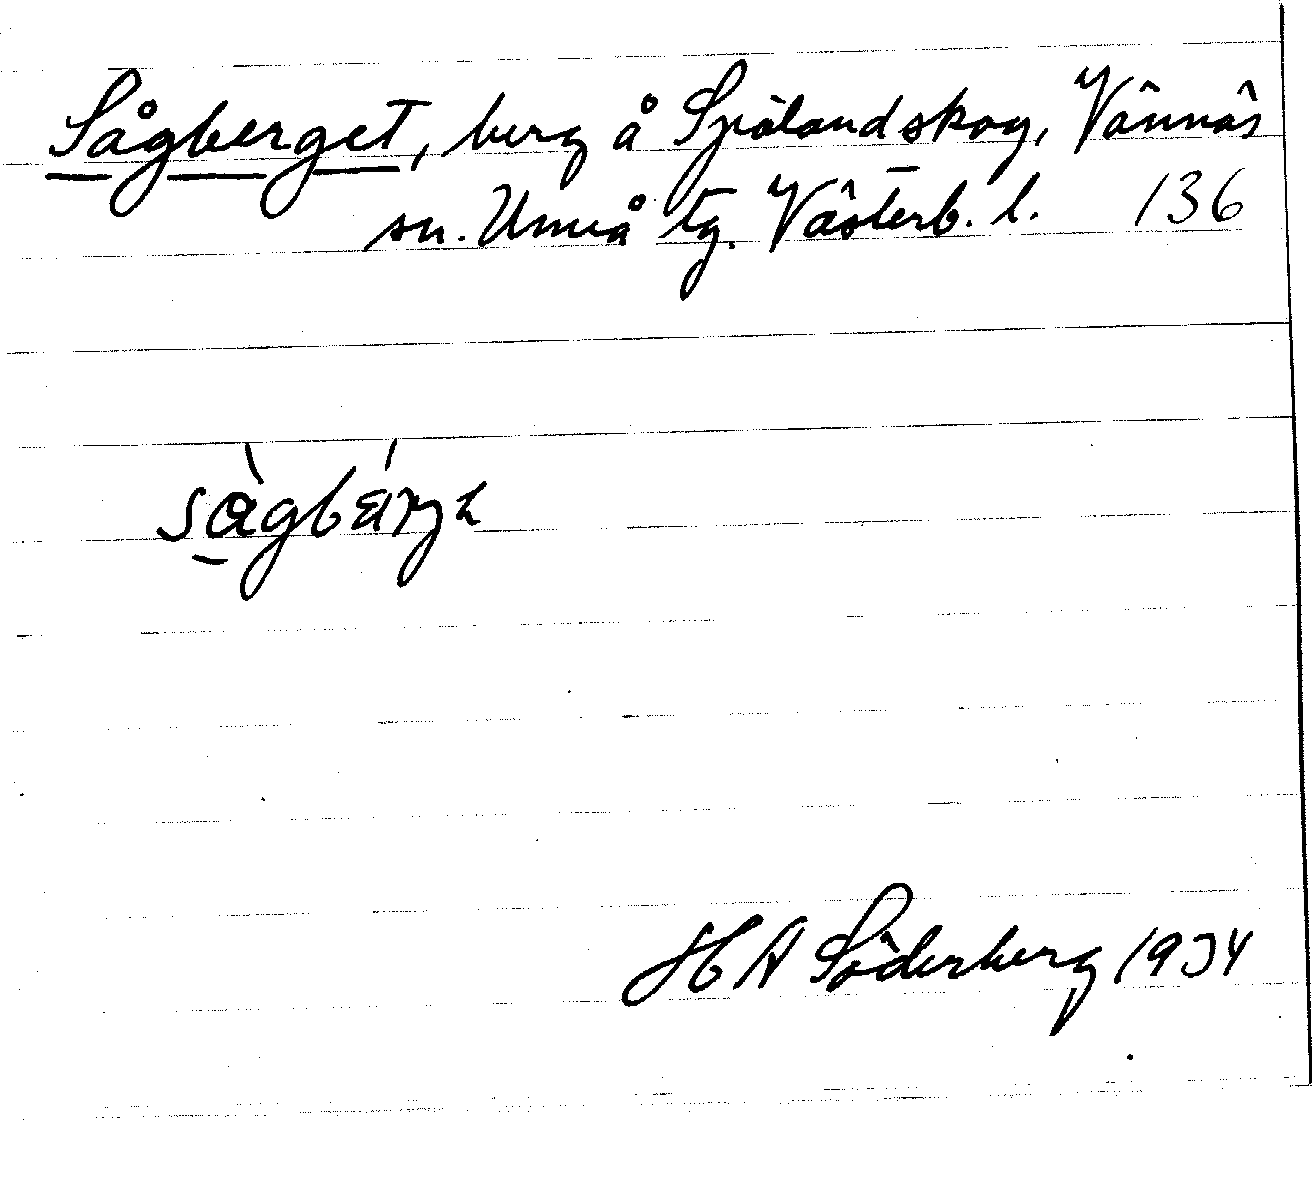 Sågberget, berg å Spölandskog, Vännäs
sn. Umeå tg. Västerb. l. 136
H A Söderberg 1934